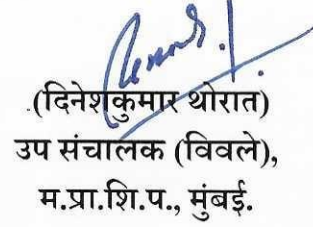 (दिनेशकुमार थोरात)
उप संचालक (विवले),
म.प्रा.शि.प., मुंबई.